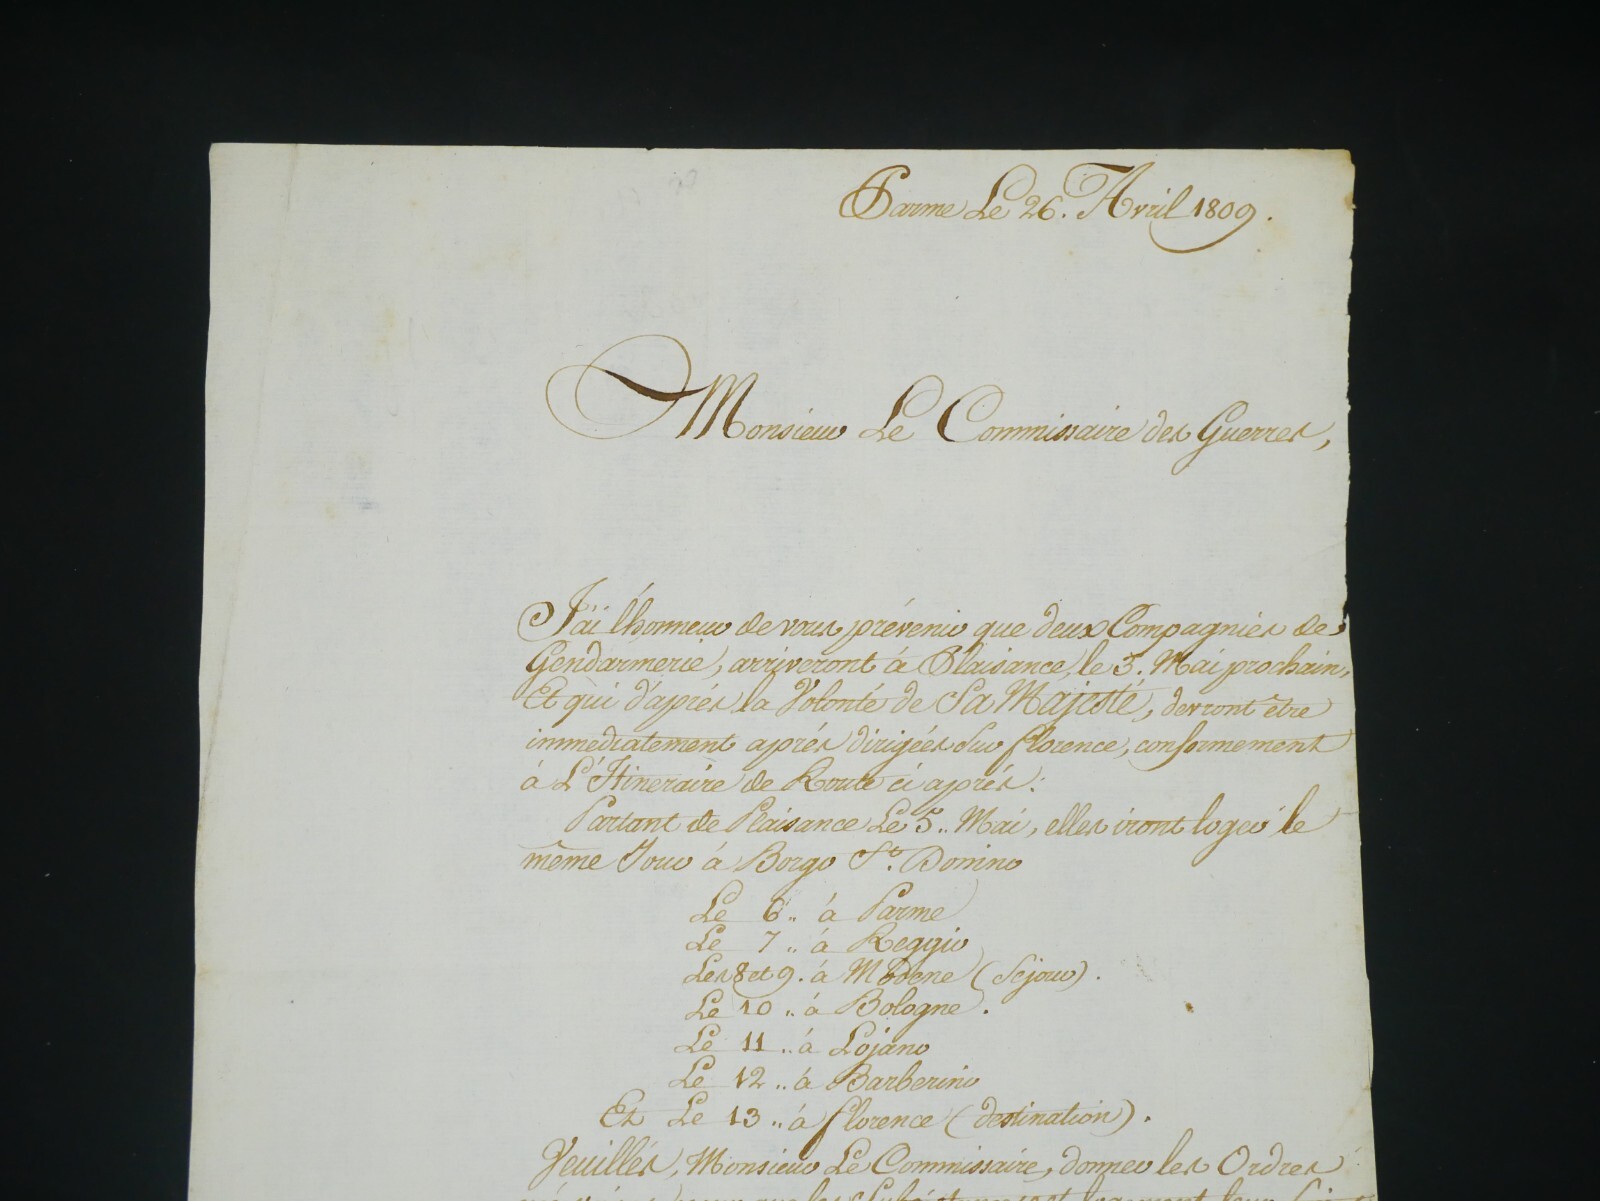 Parme Le 26. Avril 1809.
Monsieur Le Commissaire des Guerres,
J'ai l'honneur de vous prévenir que deux Compagnies de
Gendarmerie, arriveront à Plaisance, le 3. Mai prochain,
Et qui d'aprés la Volonté de Sa Majesté, devront être
immediatement aprés dirigées sur florence, conformement
à L'Itineraire de Route ci aprés:
Partant de Plaisance Le 5.. Mai, elles iront loger le
même Jour à Borgo St. Donino
Le 6.. à Parme
Le 7.. à Reggio
Les 8 et 9. à Modene (Sejour).
Le 10.. à Bologne.
Le 11.. à Lojano
Le 12.. à Barberino
Et Le 13.. à florence (destination).
Veuillés, Monsieur Le Commissaire, donner les Ordres